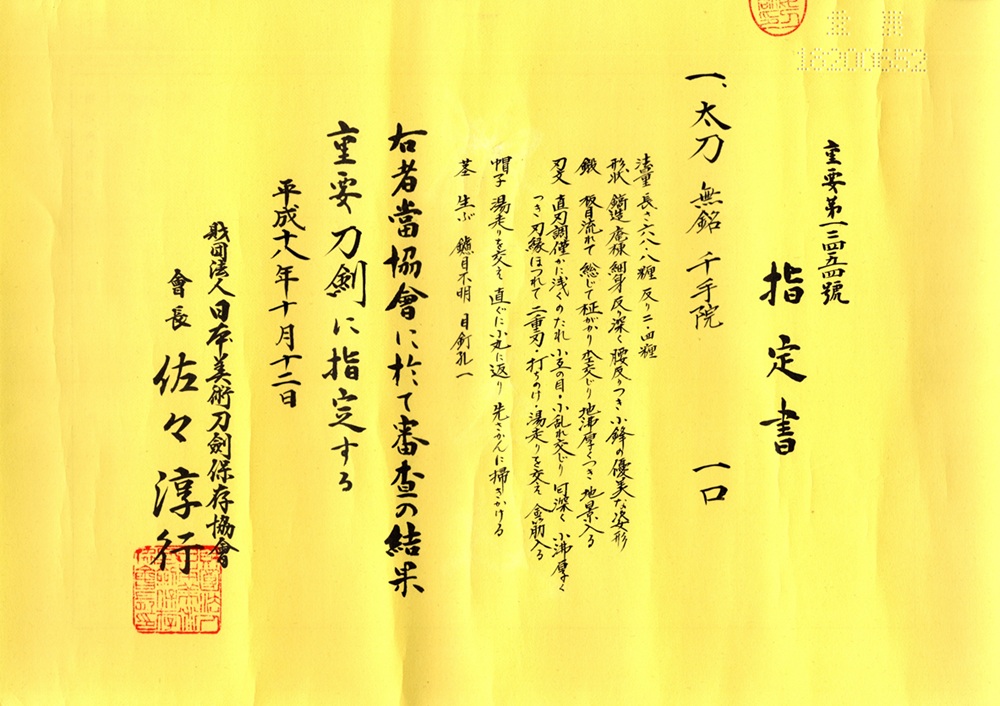 重要
18200652
重要第一二四五四號
指定書
一、太刀 無銘 千手院 一口
法量 長さ六八・八糎 反り二・四糎
形状 鎬造 庵棟 細身 反り深く 腰反りつき 小鋒の優美な姿形
鍛 板目流れて 総じて柾がかり 杢交じり 地沸厚くつき 地景入る
刃文 直刃調僅かに浅くのたれ 小互の目・小乱れ交じり 匂深く 小沸厚く
つき 刃縁ほつれて 二重刃・打のけ・湯走りを交え 金筋入る
帽子 湯走りを交え 直ぐに小丸に返り 先さかんに掃きかける
茎 生ぶ 鑢目不明 目釘孔一
右者當協會に於て審査の結果
重要刀劍に指定する
平成十八年十月十二日
財団法人日本美術刀劍保存協會
會長 佐々淳行